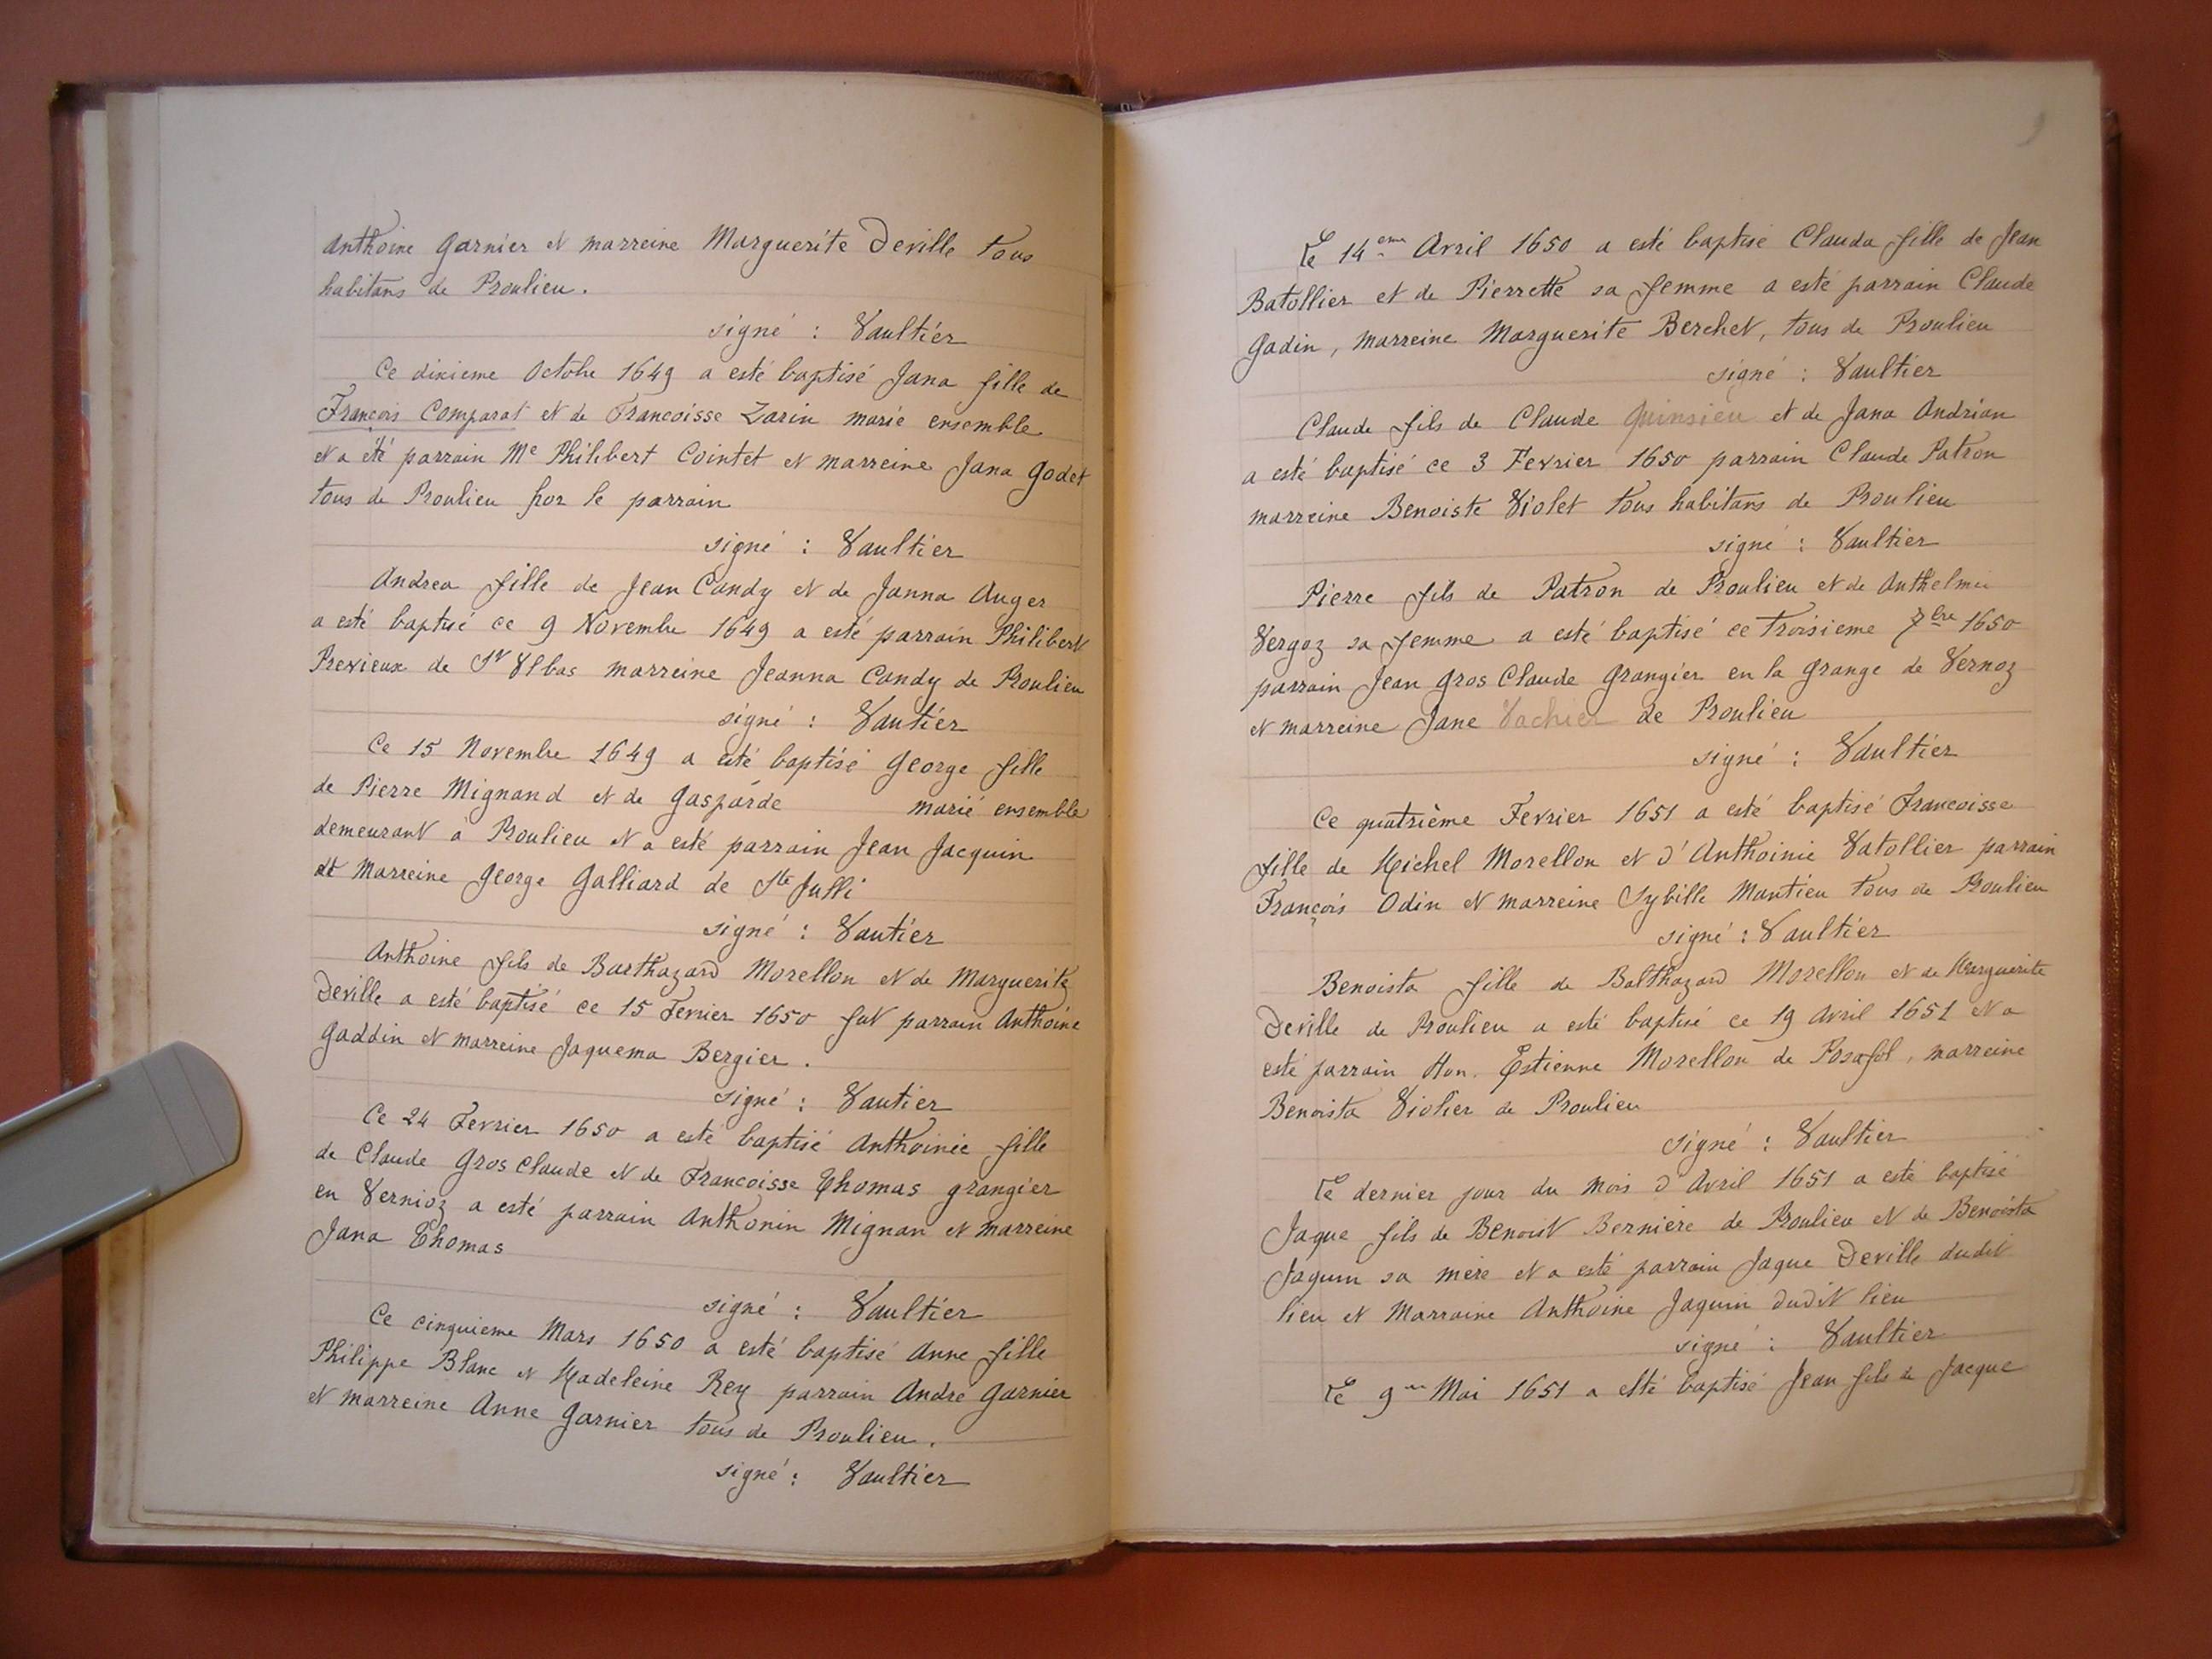 Anthoine Garnier et marreine Marguerite Deville tous
habitans de Proulieu.
signé : Vaultier
Ce dixieme Octobre 1649 a esté baptisé Jana fille de
François Comparat et de Francoisse Zarin marié ensemble
et a été parrain Me Philibert Cointet et marreine Jana Godet
tous de Proulieu hor le parrain
signé : Vaultier
Andrea fille de Jean Candy et de Janna Auger
a esté baptisé ce 9 Novembre 1649 a esté parrain Philibert
Previeux de St Vlbas marreine Jeanna Candy de Proulieu
signé : Vautier
Ce 15 Novembre 1649 a esté baptisé George fille
de Pierre Mignand et de Gasparde marié ensemble
demeurant à Proulieu et a esté parrain Jean Jacquin
et Marreine George Galliard de Ste Julli
signé : Vautier
Anthoine fils de Barthazard Morellon et de Marguerite
Deville a esté baptisé ce 15 Fevrier 1650 fut parrain Anthoine
Gaddin et marreine Jaquema Bergier.
signé : Vautier
Ce 24 Fevrier 1650 a esté baptisé Anthoinie fille
de Claude Gros Claude et de Francoisse Thomas grangier
en Vernioz a esté parrain Anthonin Mignan et marreine
Jana Thomas
signé : Vaultier
Ce cinquieme Mars 1650 a esté baptisé Anne fille
Philippe Blanc et Madeleine Rey parrain André Garnier
et marreine Anne Garnier tous de Proulieu.
signé : Vaultier
Le 14eme Avril 1650 a esté baptisé Clauda fille de Jean
Batollier et de Pierrette sa femme a esté parrain Claude
Gadin, marreine Marguerite Berchet, tous de Proulieu
signé : Vaultier
Claude fils de Claude Quinsieu et de Jana Andrian
a esté baptisé ce 3 Fevrier 1650 parrain Claude Patron
marreine Benoiste Violet tous habitans de Proulieu
signé : Vaultier
Pierre fils de Patron de Proulieu et de Anthelmie
Vergoz sa femme a esté baptisé ce troisieme 7bre 1650
parrain Jean Gros Claude Grangier en la grange de Vernoz
et marreine Jane Vachier de Proulieu
signé : Vaultier
Ce quatrième Fevrier 1651 a esté baptisé Francoisse
fille de Michel Morellon et d'Anthoinie Vatollier parrain
François Odin et marreine Sybille Mantieu tous de Proulieu
signé : Vaultier
Benoista fille de Balthazard Morellon et de Marguerite
Deville de Proulieu a esté baptisé ce 19 Avril 1651 et a
esté parrain Hon. Estienne Morellon de Posafol, marreine
Benoista Violier de Proulieu
signé : Vaultier
Le dernier jour du mois d'Avril 1651 a esté baptisé
Jaque fils de Benoist Berniere de Proulieu et de Benoista
Jaquin sa mère et a esté parrain Jaque Deville dudit
lieu et Marraine Anthoine Jaquin dudit lieu
signé : Vaultier
Le 9me Mai 1651 a esté baptisé Jean fils de Jacque